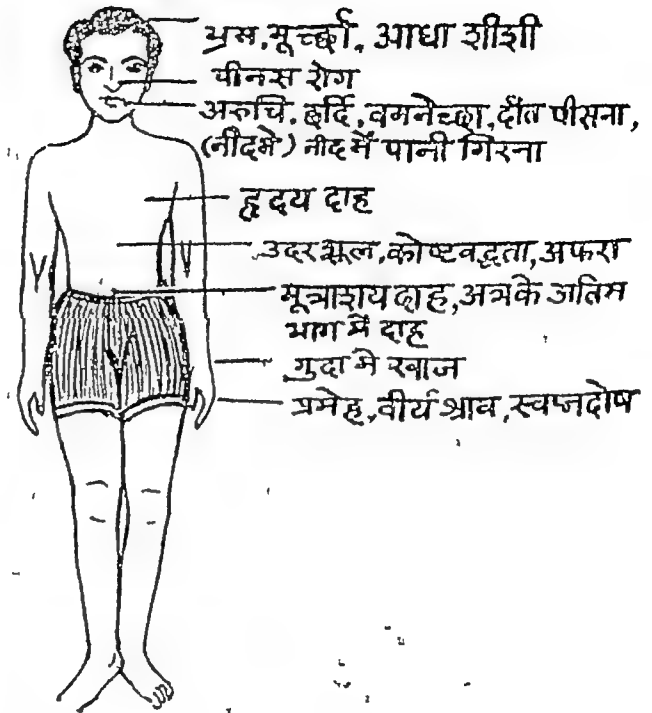 भ्रम, मूर्च्छा, आधा शीशी
पीनस रोग
अरुचि, छर्दि, वमनेच्छा, दाँत पीसना,
(नींदमे) नीद में पानी गिरना
हृदय दाह
उदरशूल, कोष्टवद्धता, अफरा
मूत्राशय दाह, अत्रके अतिम
भाग में दाह
गुदा मे खाज
प्रमेह, वीर्य श्राव, स्वप्नदोष